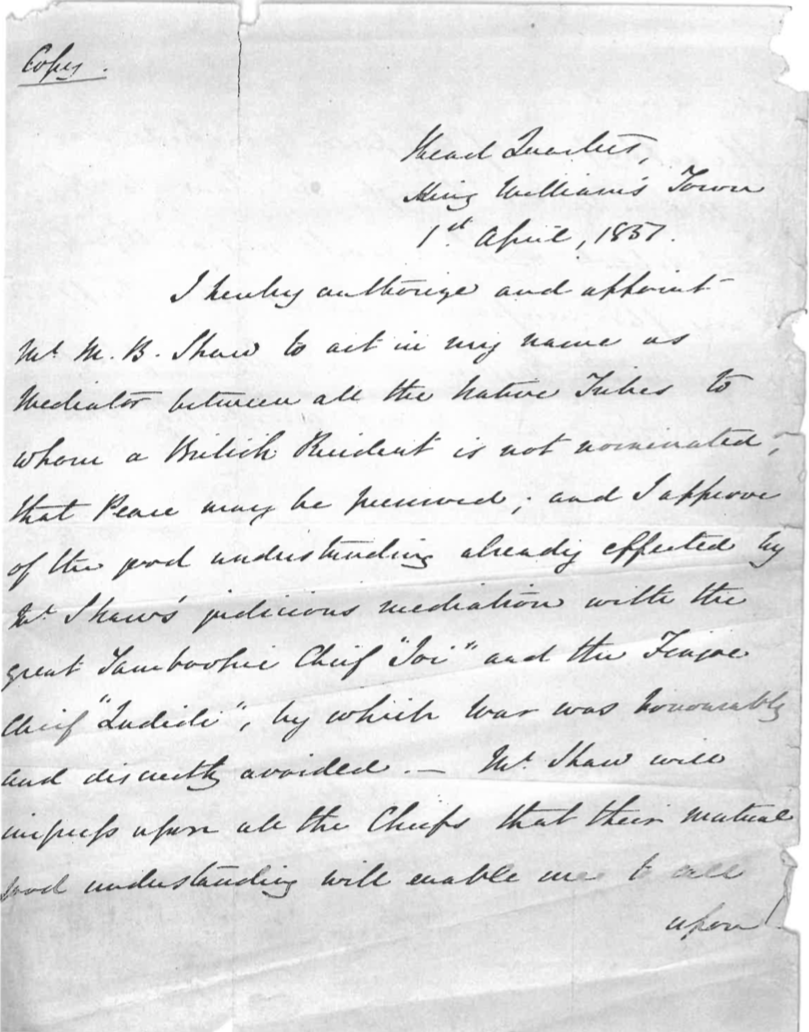 Copy.
Head Quarters,
King William's Town
1st April, 1851.
I hereby authorize and appoint
Mr. M. B. Shaw to act in my name as
Mediator between all the Native Tribes to
whom a British Resident is not nominated,
that Peace may be preserved; and I approve
of the good understanding already effected by
Mr. Shaw's judicious mediation with the
great Tambookie Chief "Joi" and the Fingoe
Chief "Ludidi", by which War was honourably
and discreetly avoided. — Mr. Shaw will
impress upon all the Chiefs that their mutual
good understanding will enable me to call
upon